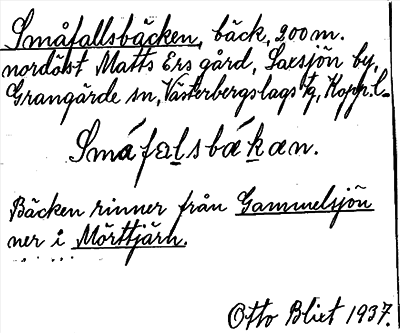 Småfallsbäcken, bäck, 200 m.
nordöst Matts Ers gård, Saxsjön by,
Grangärde sn, Västerbergslags tg, Kopp. l.
Småfalsbäkan.
Bäcken rinner från Gammelsjön
ner i Mörttjärn.
Otto Blixt 1937.